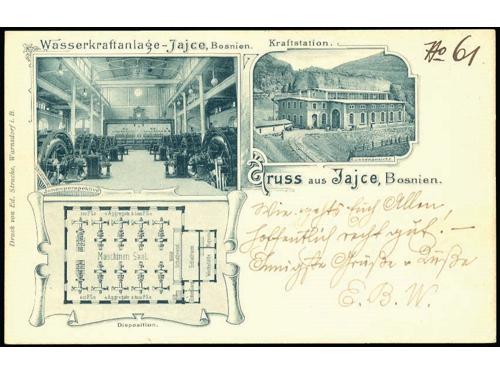 Wasserkraftanlage-Jajce, Bosnien.
Kraftstation.
No 61
Innenperspektive
Aussenansicht
Gruss aus Jajce, Bosnien.
Wie gehts Euch Allen!
hoffentlich recht gut! –
Innigste Grüße u Küße
E. B. W.
Maschinen Saal.
Disposition.
Druck von Ed. Strache, Warnsdorf i. B.